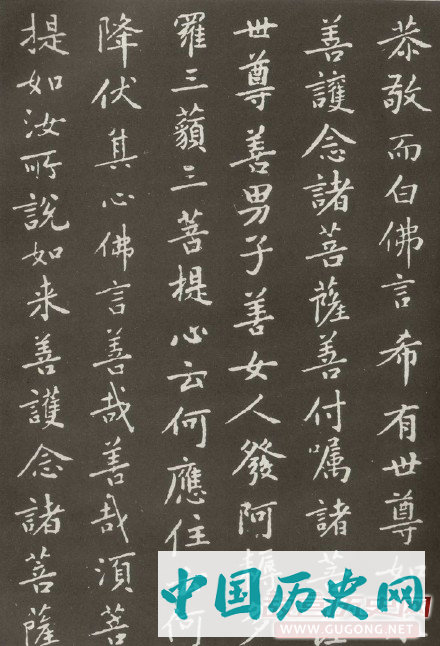 恭敬而白佛言希有世尊如
善護念諸菩薩善付嘱諸菩
世尊善男子善女人發阿耨多
羅三藐三菩提心云何應住云何
降伏其心佛言善哉善哉須菩
提如汝所說如来善護念諸菩薩
中国历史网
WWW.GUGONG.NET